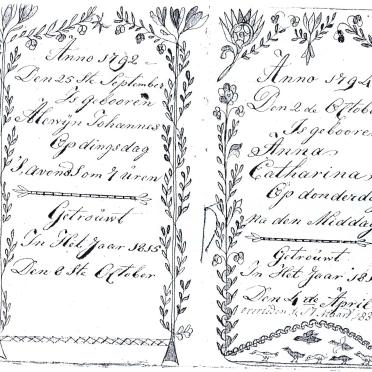 Anno 1792
Den 25 ste September
Is gebooren
Alewijn Johannes
Op dingsdag
S,avonds om 7 uren
Getrouwt
In Het Jaar 1815
Den 8 ste October
Anno 1794
Den 2 de Octob
Is geboore
Anna
Catharina
Op donderda
na den Middag
Getrouwt
In Het Jaar 18
Den 4 de April